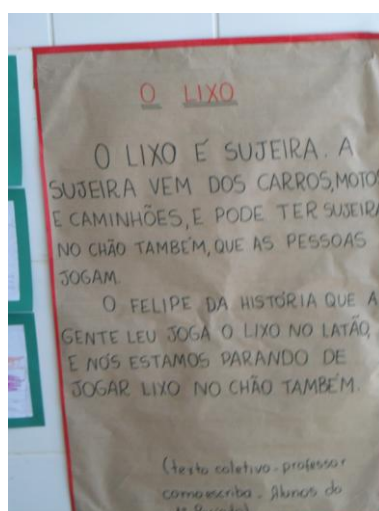 O LIXO
O LIXO É SUJEIRA. A
SUJEIRA VEM DOS CARROS, MOTOS
E CAMINHÕES, E PODE TER SUJEIRA
NO CHÃO TAMBÉM, QUE AS PESSOAS
JOGAM.
O FELIPE DA HISTÓRIA QUE A
GENTE LEU JOGA O LIXO NO LATÃO,
E NÓS ESTAMOS PARANDO DE
JOGAR LIXO NO CHÃO TAMBÉM.
(texto coletivo - professor
como escriba - Alunos do